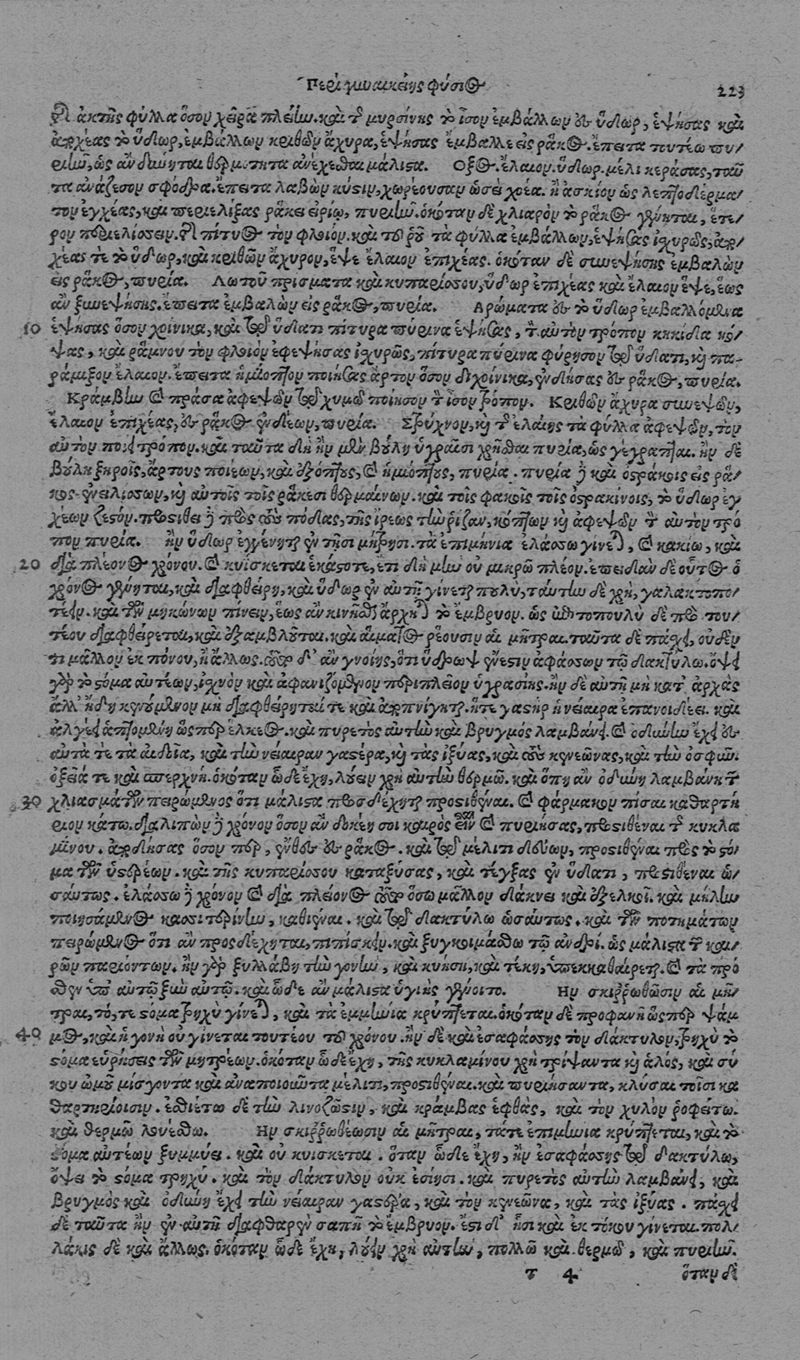 Περὶ γυναικείης φύσιος 223
ἢ ἀκτῆς φύλλα ὅσον χεῖρα πλείω. καὶ τ̃ μυρσίνης τὸ ἴσον ἐμβάλλων ἐς ὕδωρ, ἑψήσας καὶ
ἀπχέας τὸ ὕδωρ, ἐμβάλλων κριθῶν ἄχυρα, ἑψήσας ἔμβαλλε εἰς ῥάκος. ἔπειτα τουτέω πυ-
ριᾶν, ὡς ἂν δύνηται θερμότητα ἀνέχεσθαι μάλιστα. Οξος. ἔλαιον. ὕδωρ. μέλι κεράσας, ταῦ
τα ἀνάζεσον σφόδρα. ἔπειτα λαβὼν κύστιν, χωρέουσαν ὡσεὶ χοέα. ἢ ἀσκίον ὡς λεπτοδέρμα-
τον ἐγχέας, καὶ περιελίξας ῥάκει εἰρίῳ, πυριᾶν. ὁκόταν δὲ χλιαρὸν τὸ ῥάκος γένηται, ἕτε-
ρον περιελίσσειν. ἢ πίτυος τὸν φλοιὸν. καὶ τοῦ ῥοῦ τὰ φύλλα ἐμβάλλων, ἑψήσας ἰσχυρῶς, ἀπ-
χέας τε τὸ ὕδωρ, καὶ κριθῶν ἄχυρον, ἕψε ἔλαιον ἐπιχέας. ὁκόταν δὲ συνεψήσῃς ἐμβαλὼν
εἰς ῥάκος, πυρία. Λωτοῦ πρίσματα καὶ κυπαρίσσου, ὕδωρ ἐπιχέας καὶ ἔλαιον ἕψε, ἕως
ἂν ξυνεψήσῃς. ἔπειτα ἐμβαλὼν εἰς ῥάκος, πυρία. Αρώματα ἐς τὸ ὕδωρ ἐμβαλλόμενα
10 ἑψήσας ὅσον χοίνικα, καὶ ἐν ὕδατι πίτυρα πύρινα ἑψήσας, τ̃ αὐτὸν τρόπον κηκίδια κό-
ψας, καὶ ῥάμνου τὸν φλοιὸν ἐφεψήσας ἰσχυρῶς, πίτυρα πύρινα φύρησον ἐν ὕδατι, καὶ πα-
ράμιξον ἔλαιον. ἔπειτα ἡμίοπτον ποιήσας ἄρτον ὅσον διχοίνικα, ἐνδήσας ἐς ῥάκος, πυρία.
Κράμβην καὶ πράσα ἀφεψῶν ἐν χυμῷ ποίησον τ̃ ἴσον τρόπον. Κριθῶν ἄχυρα συνεψῶν,
ἔλαιον ἐπιχέας, ἐς ῥάκος ἐνδέων, πυρία. Στρύχνον, καὶ τ̃ ἐλαίης τὰ φύλλα ἀφεψῶν, τὸν
αὐτὸν ποιεῖ τρόπον. καὶ ταῦτα δὴ ἢν μὲν βούλῃ ὑγραῖσι χρῆσθαι πυρία, ὡς γέγραπται. ἢν δὲ
βούλῃ ξηροῖς, ἄρτους ποιέων, καὶ ἐξόπτους, καὶ ἡμιόπτους, πυρία. πυρία ἢ καὶ ὀστράκοις εἰς ῥά-
κος ἐνελίσσων, καὶ αὐτοῖς τοῖς ῥάκεσι θερμαίνων. καὶ τοῖς φακοῖς τοῖς ὀστρακίνοις, τὸ ὕδωρ ἐγ
χέων ζεστόν. προστίθει ἢ πρὸς τοὺς πόδας, τῆς ἴρεως τὴν ῥίζαν, κόπτων καὶ ἀφεψῶν τ̃ αὐτὸν τρό
πον πυρία. ἢν ὕδωρ ἐγγένηται ἐν τῇσι μήτρῃσι. τὰ ἐπιμήνια ἐλάσσω γίνεται, καὶ κακίω, καὶ
20 διὰ πλέονος χρόνου. καὶ κυΐσκεται ἑκάστοτε, ἐπὶ δὴ μὲν οὐ μικρῷ πλέον. ἐπειδὰν δὲ οὗτος ὁ
χρόνος γένηται, καὶ διαφθείρῃ, καὶ ὕδωρ ἐν αὐτῇ γίνεται πολύ, ταύτην δὲ χρὴ, γαλακτοπο-
τεῖν. καὶ τῶν μηκώνων πίνειν, ἕως ἂν κινηθῇ ἄρχηται τὸ ἔμβρυον. ὡς ἐπιτοπουλὺ δὲ πρὸ του-
τέου διαφθείρεται, καὶ ἐξαμβλοῦται. καὶ αἵματος ῥέουσιν αἱ μῆτραι. ταῦτα δὲ πάσχει, οὐδέν
τι μᾶλλον ἐκ πόνου, ἢ ἄλλως. τῷδε δ’ ἂν γνοίης, ὅτι ὕδρωψ ἔνεστιν ἀφάσσων τῷ δακτύλῳ. ὄψει
γὰρ τὸ στόμα αὐτέων, ἰσχνὸν καὶ ἀφανιζόμενον περίπλεον ὑγρασίης. ἢν δὲ αὐτῇ μὴ κατ’ ἀρχὰς
ἀλλ’ ἤδη κινούμενον μὴ διαφθείρηταί τε καὶ ἀποπνίγηται. ἥ τε γαστὴρ ἡ νείαιρα ἐπανοιδέει. καὶ
ἀλγεῖ ἁπτομένῃ ὥσπερ ἕλκεος. καὶ πυρετὸς αὐτὴν καὶ βρυγμὸς λαμβάνει. καὶ ὀδύνην ἔχει ἐς
αὐτὰ τε τὰ αἰδοῖα, καὶ τὴν νείαιραν γαστέρα, καὶ τὰς ἰξύας, καὶ τοὺς κενεῶνας, καὶ τὴν ὀσφῦν.
ὀξείά τε καὶ ἀσπερχνή. ὁκόταν ὧδε ἔχῃ, λούειν χρὴ αὐτὴν θερμῷ. καὶ ὅπῃ ἂν ὀδύνη λαμβάνῃ τ̃
30 χλιασμάτων πειρώμενος ὅτι μάλιστα προσδέχηται προστιθέναι. καὶ φάρμακον πῖσαι καθαρτή
ριον κάτω. διαλιπὼν ἢ χρόνον ὅσον ἂν δοκέῃ σοι καιρὸς εἶναι καὶ πυριήσας, προστιθέναι τ̃ κυκλα
μίνου. ἀποδήσας ὅσον περ, ἔνθες ἐς ῥάκος. καὶ ἐν μέλιτι δεύων, προστιθέναι πρὸς τὸ στό-
μα τῶν ὑστερέων. καὶ τῆς κυπαρίσσου καταξύσας, καὶ τέγξας ἐν ὕδατι, προστιθέναι ὡ-
σαύτως. ἐλάσσω ἢ χρόνον καὶ διὰ πλέονος τόσῳ ὅσῳ μᾶλλον δάκνει καὶ ἐξελκοῖ. καὶ μήλην
ποιησάμενος κασσιτερίνην, καθιέναι. καὶ ἐν δακτύλῳ ὡσαύτως. καὶ τῶν ποτημάτων
πειρώμενος ὅτι ἂν προσδέχηται, πιπίσκειν. καὶ ξυγκοιμάσθω τῷ ἀνδρί. ὡς μάλιστα τ̃ και-
ρῶν παριόντων. ἢν γὰρ ξυλλάβῃ τὴν γονὴν, καὶ κυήσῃ, καὶ τέκῃ, ὑπεκκαθαίρεται. καὶ τὰ πρό
σθεν ὑπ’ αὐτοῦ ξὺν αὐτῷ. καὶ ὧδε ἂν μάλιστα ὑγιὴς γένοιτο. Ην σκιῤῥωθῶσιν αἱ μῆ-
τραι, τό, τε στόμα τρηχὺ γίνεται, καὶ τὰ ἐμμήνια κρύπτεται. ὁκόταν δὲ προφανῇ ὥσπερ ψάμ
40 μος, καὶ ἡ γονὴ οὐ γίνεται τουτέου τοῦ χρόνου. ἢν δὲ καὶ ἐσαφάσσῃς τὸν δάκτυλον, τρηχὺ τὸ
στόμα εὑρήσεις τῶν μητρέων. ὁκόταν ὧδε ἔχῃ, τῆς κυκλαμίνου χρὴ τρίψαντα καὶ ἁλὸς, καὶ σύ
κου ὠμοῦ μίσγοντα καὶ ἀναποιοῦντα μέλιτι, προστιθέναι. καὶ πυριήσαντα, κλύσαι τοῖσι κα
θαρτηρίοισιν. ἐσθιέτω δὲ τὴν λινόζωστιν, καὶ κράμβας ἑφθὰς, καὶ τὸν χυλὸν ῥοφείτω.
καὶ θερμῷ λουέσθω. Ην σκιῤῥωθέωσιν αἱ μῆτραι, τά τε ἐπιμήνια κρύπτεται, καὶ τὸ
στόμα αὐτέων ξυμμύει. καὶ οὐ κυΐσκεται. ὅταν ὧδε ἔχῃ, ἢν ἐσαφάσσῃς ἐν δακτύλῳ,
ὄψει τὸ στόμα τρηχύ. καὶ τὸν δάκτυλον οὐκ ἐσίησι. καὶ πυρετὸς αὐτὴν λαμβάνει, καὶ
βρυγμὸς καὶ ὀδύνη ἔχει τὴν νείαιραν γαστέρα, καὶ τὸν κενεῶνα, καὶ τὰς ἰξύας. πάσχει
δὲ ταῦτα ἢν ἐν αὐτῇ διαφθαρὲν σαπῇ τὸ ἔμβρυον. ἔστι δ’ ᾗσι καὶ ἐκ τόκου γίνεται. πολ-
λάκις δὲ καὶ ἄλλως. ὁκόταν ὧδε ἔχῃ, λούειν χρὴ αὐτὴν, πολλῷ καὶ θερμῷ, καὶ πυριᾶν.
T 4 ὅταν δὲ